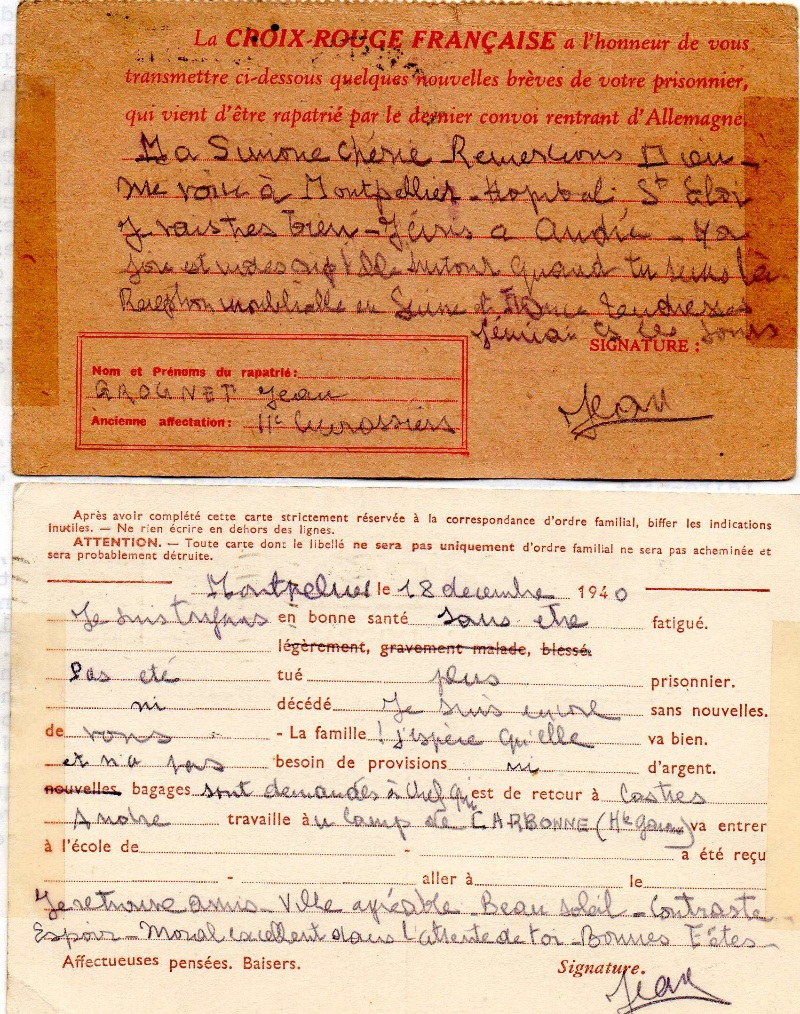 La CROIX-ROUGE FRANÇAISE a l'honneur de vous
transmettre ci-dessous quelques nouvelles brèves de votre prisonnier,
qui vient d'être rapatrié par le dernier convoi rentrant d'Allemagne.
Ma Simone chérie Remercions Dieu -
me voici à Montpellier - Hopital St Eloi
Je vais très bien - J'écris a André - Ma
joie est indescriptible surtout quand tu seras là
Reception inoubliable en Suisse et France tendresses
SIGNATURE :
Nom et Prénoms du rapatrié :
GROGNET Jean
Ancienne affectation : 11e Cuirassiers
Jean
Après avoir complété cette carte strictement réservée à la correspondance d'ordre familial, biffer les indications
inutiles. — Ne rien écrire en dehors des lignes.
ATTENTION. — Toute carte dont le libellé ne sera pas uniquement d'ordre familial ne sera pas acheminée et
sera probablement détruite.
Montpellier le 18 decembre 1940
Je suis toujours en bonne santé sans etre fatigué.
légèrement, gravement malade, blessé.
Pas été tué plus prisonnier.
ni décédé Je suis encore sans nouvelles.
de vous - La famille ! j'espère qu'elle va bien.
et n'a pas besoin de provisions ni d'argent.
nouvelles bagages sont demandés à qui est de retour à Castres
Andre travaille à u Camp de CARBONNE (Hte Garonne) va entrer
à l'école de - a été reçu
- aller à le
Je retrouve amis - Ville agréable - Beau soleil - Contraste -
Espoir - Moral excellent dans l'attente de toi - Bonnes Fêtes -
Affectueuses pensées. Baisers. Signature.
Jean